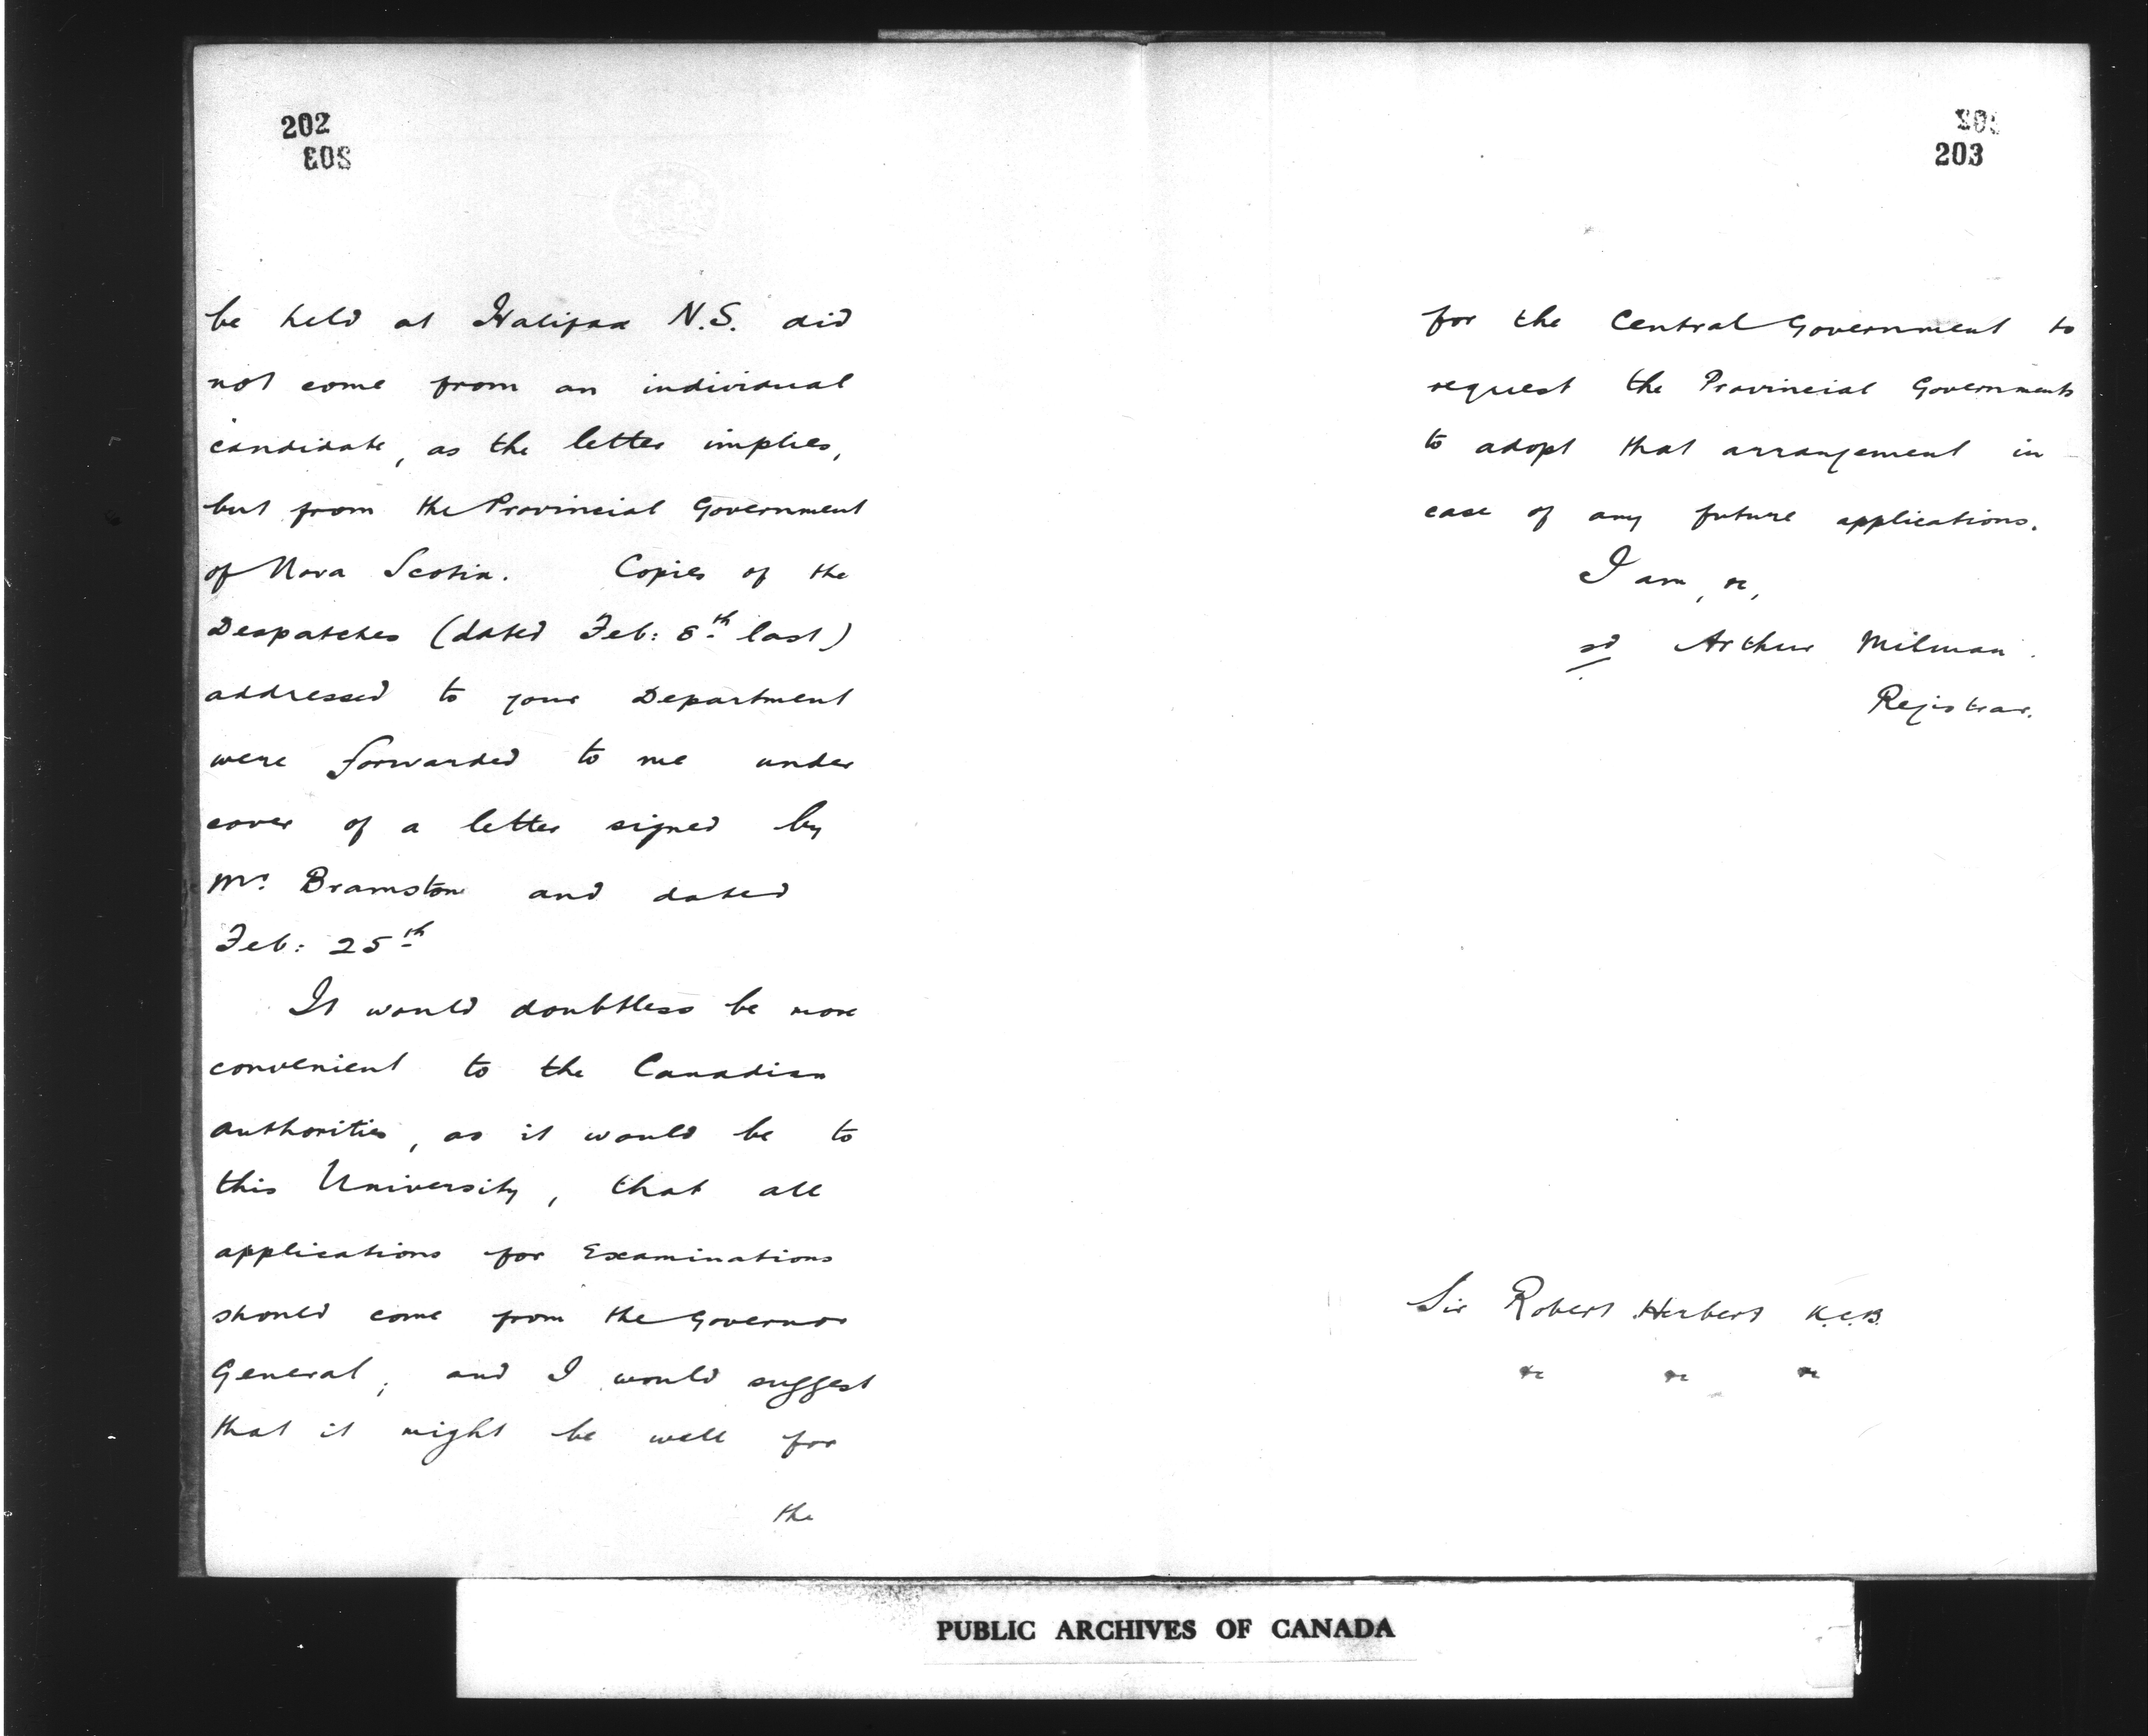 202
203
be held at Halifax N.S. did
not come from an individual
candidate, as the letter implies,
but from the Provincial Government
of Nova Scotia. Copies of the
Despatches (dated Feb: 8th last)
addressed to your Department
were forwarded to me under
cover of a letter signed by
Mr. Bramston and dated
Feb: 25th
It would doubtless be more
convenient to the Canadian
authorities, as it would be to
this University, that all
applications for Examinations
should come from the Governor
General; and I would suggest
that it might be well for
the
202
203
for the Central Government to
request the Provincial Governments
to adopt that arrangement in
case of any future applications.
I am, &c,
sd Arthur Milman.
Registrar.
Sir Robert Herbert K.C.B.
&c &c &c
PUBLIC ARCHIVES OF CANADA